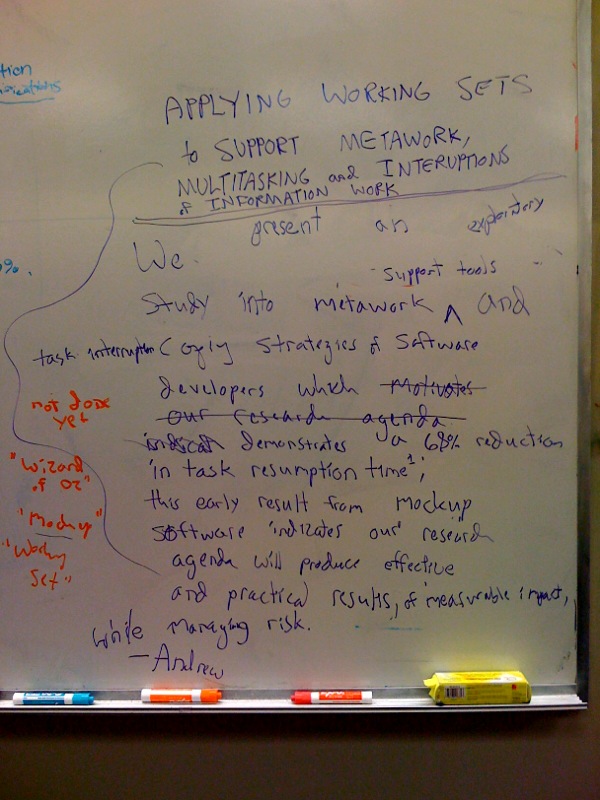 APPLYING WORKING SETS
to SUPPORT METAWORK,
MULTITASKING and INTERUPTIONS
of INFORMATION WORK
We present an exploratory
support tools
Study into metawork ^ and
task interruption coping strategies of software
developers which motivates
our research agenda
demonstrates a 68% reduction
in task resumption time¹;
this early result from mockup
software indicates our research
agenda will produce effective
and practical results, of measurable impact,
while managing risk.
—Andrew
tion
0%.
not done
yet
"Wizard
of OZ"
"Mockup"
"Working
Set"
EXPO
EXPO
EXPO